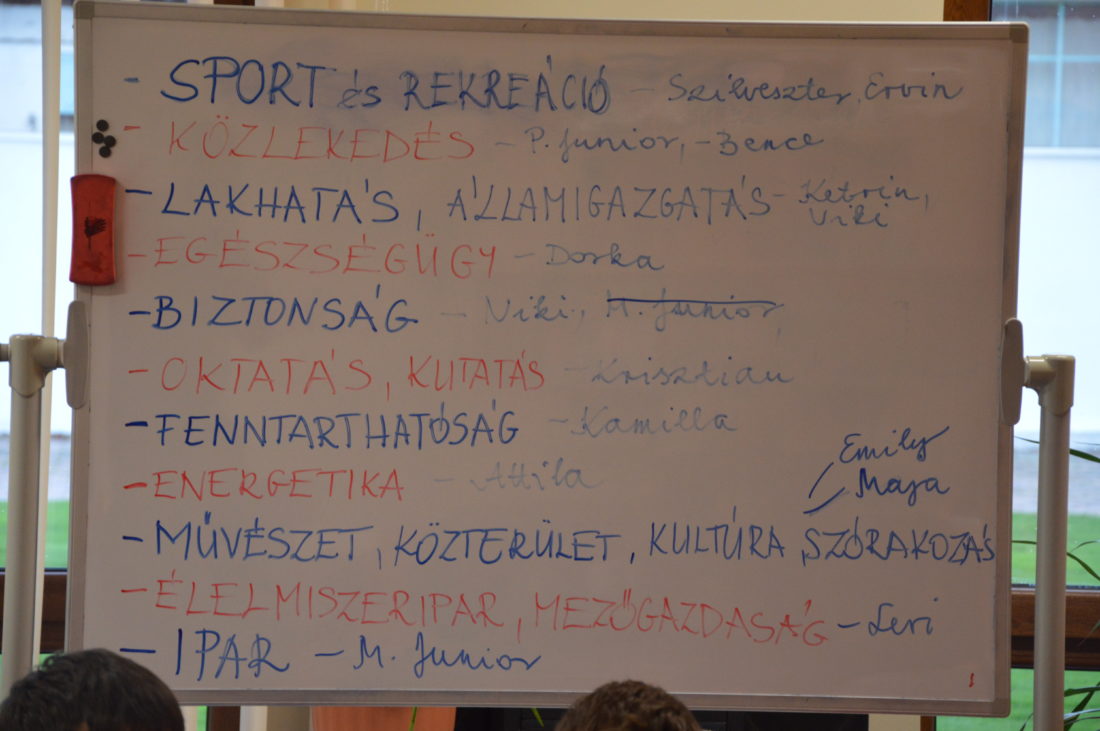 - SPORT és REKREÁCIÓ - Szilveszter, Ervin
- KÖZLEKEDÉS - P. Junior, - Bence
- LAKHATÁS, ÁLLAMIGAZGATÁS - Ketrin,
Viki
- EGÉSZSÉGÜGY - Dorka
- BIZTONSÁG - Viki, M. Junior
- OKTATÁS, KUTATÁS - Krisztian
- FENNTARTHATÓSÁG - Kamilla
- ENERGETIKA - Attila
Emily
Maja
- MŰVÉSZET, KÖZTERÜLET, KULTÚRA, SZÓRAKOZÁS
- ÉLELMISZERIPAR, MEZŐGAZDASÁG - Levi
- IPAR - M. Junior